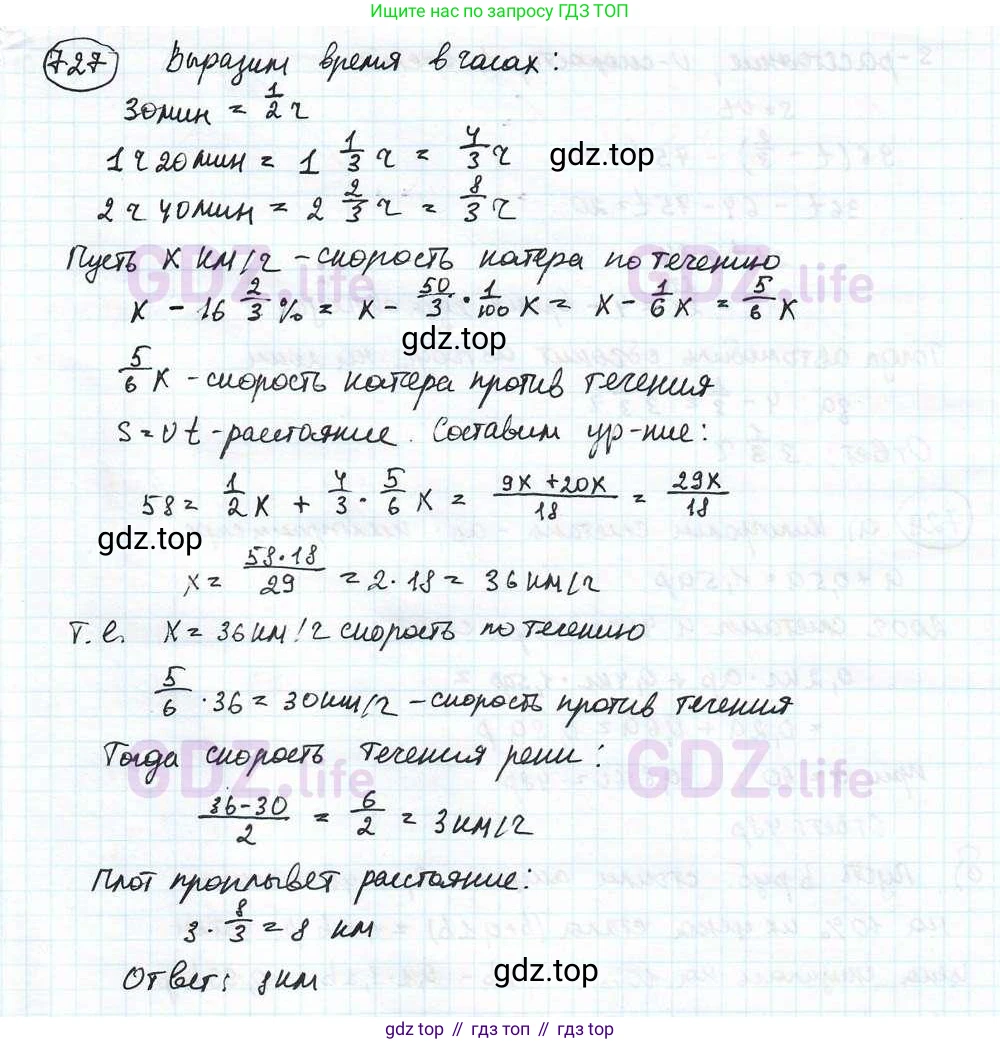 Ищите ответ по запросу ГДЗ ТОП
727 Выразим время в часах:
30мин = 1/2 ч
1ч20мин = 1 1/3 ч = 4/3 ч
gdz.top
2ч 40мин = 2 2/3 ч = 8/3 ч
Пусть x км/ч - скорость катера по течению
GDZ.life GDZ.life
x - 16 2/3 % = x - 50/3 · 1/100 x = x - 1/6 x = 5/6 x
gdz.top
5/6 x - скорость катера против течения
S = vt - расстояние. Составим ур-ние:
58 = 1/2 x + 4/3 · 5/6 x = (9x + 20x)/18 = 29x/18
gdz.top
x = (58·18)/29 = 2·18 = 36 км/ч
Т.е. x = 36км/ч скорость по течению
5/6 · 36 = 30км/ч - скорость против течения
Тогда скорость течения реки:
GDZ.life GDZ.life
(36-30)/2 = 6/2 = 3 км/ч
Плот проплывёт расстояние:
3 · 8/3 = 8 км
Ответ: 8км
gdz.top
gdz top // гдз топ // gdz.top